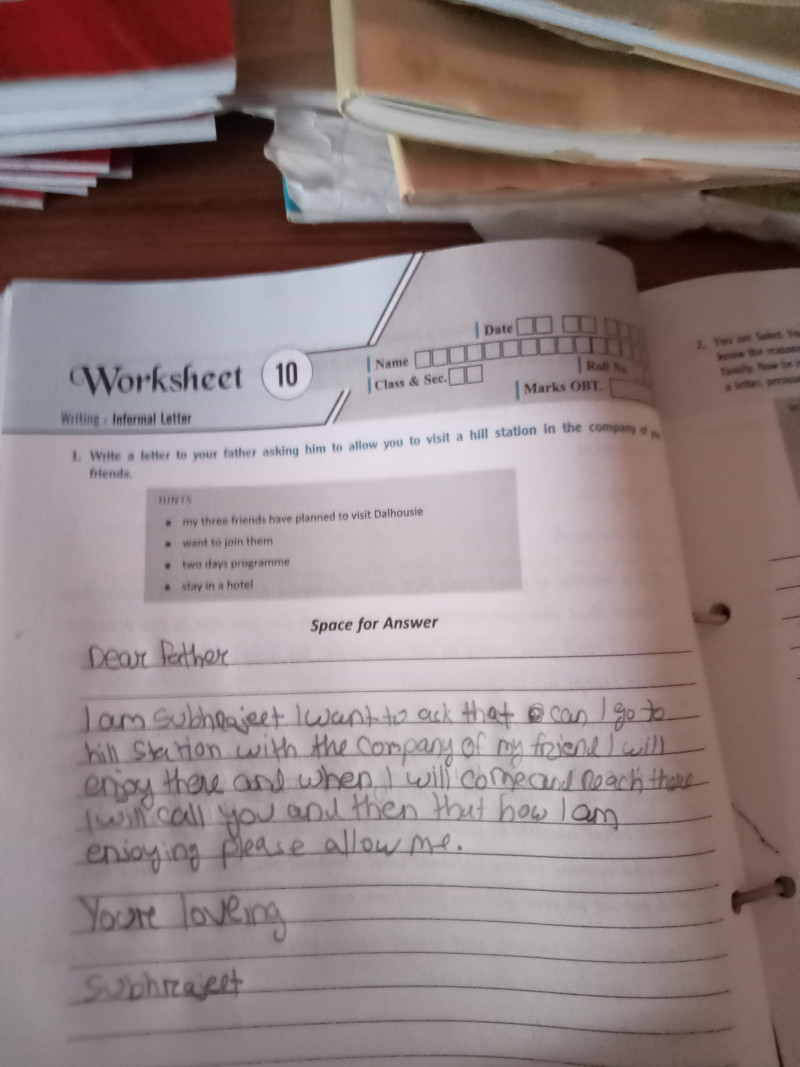 Worksheet 10
Date
Name
Class & Sec.
Roll No
Marks OBT.
Writing : Informal Letter
1. Write a letter to your father asking him to allow you to visit a hill station in the company of
friends.
HINTS
• my three friends have planned to visit Dalhousie
• want to join them
• two days programme
• stay in a hotel
Space for Answer
Dear father
I am Subhrajeet I want to ask that can I go to
hill station with the company of my friend I will
enjoy there and when I will come and reach there
I will call you and then that how I am
enjoying please allow me.
Youre loveing
Subhrajeet
2. You are
know the reasons
family. Now he is
a letter,